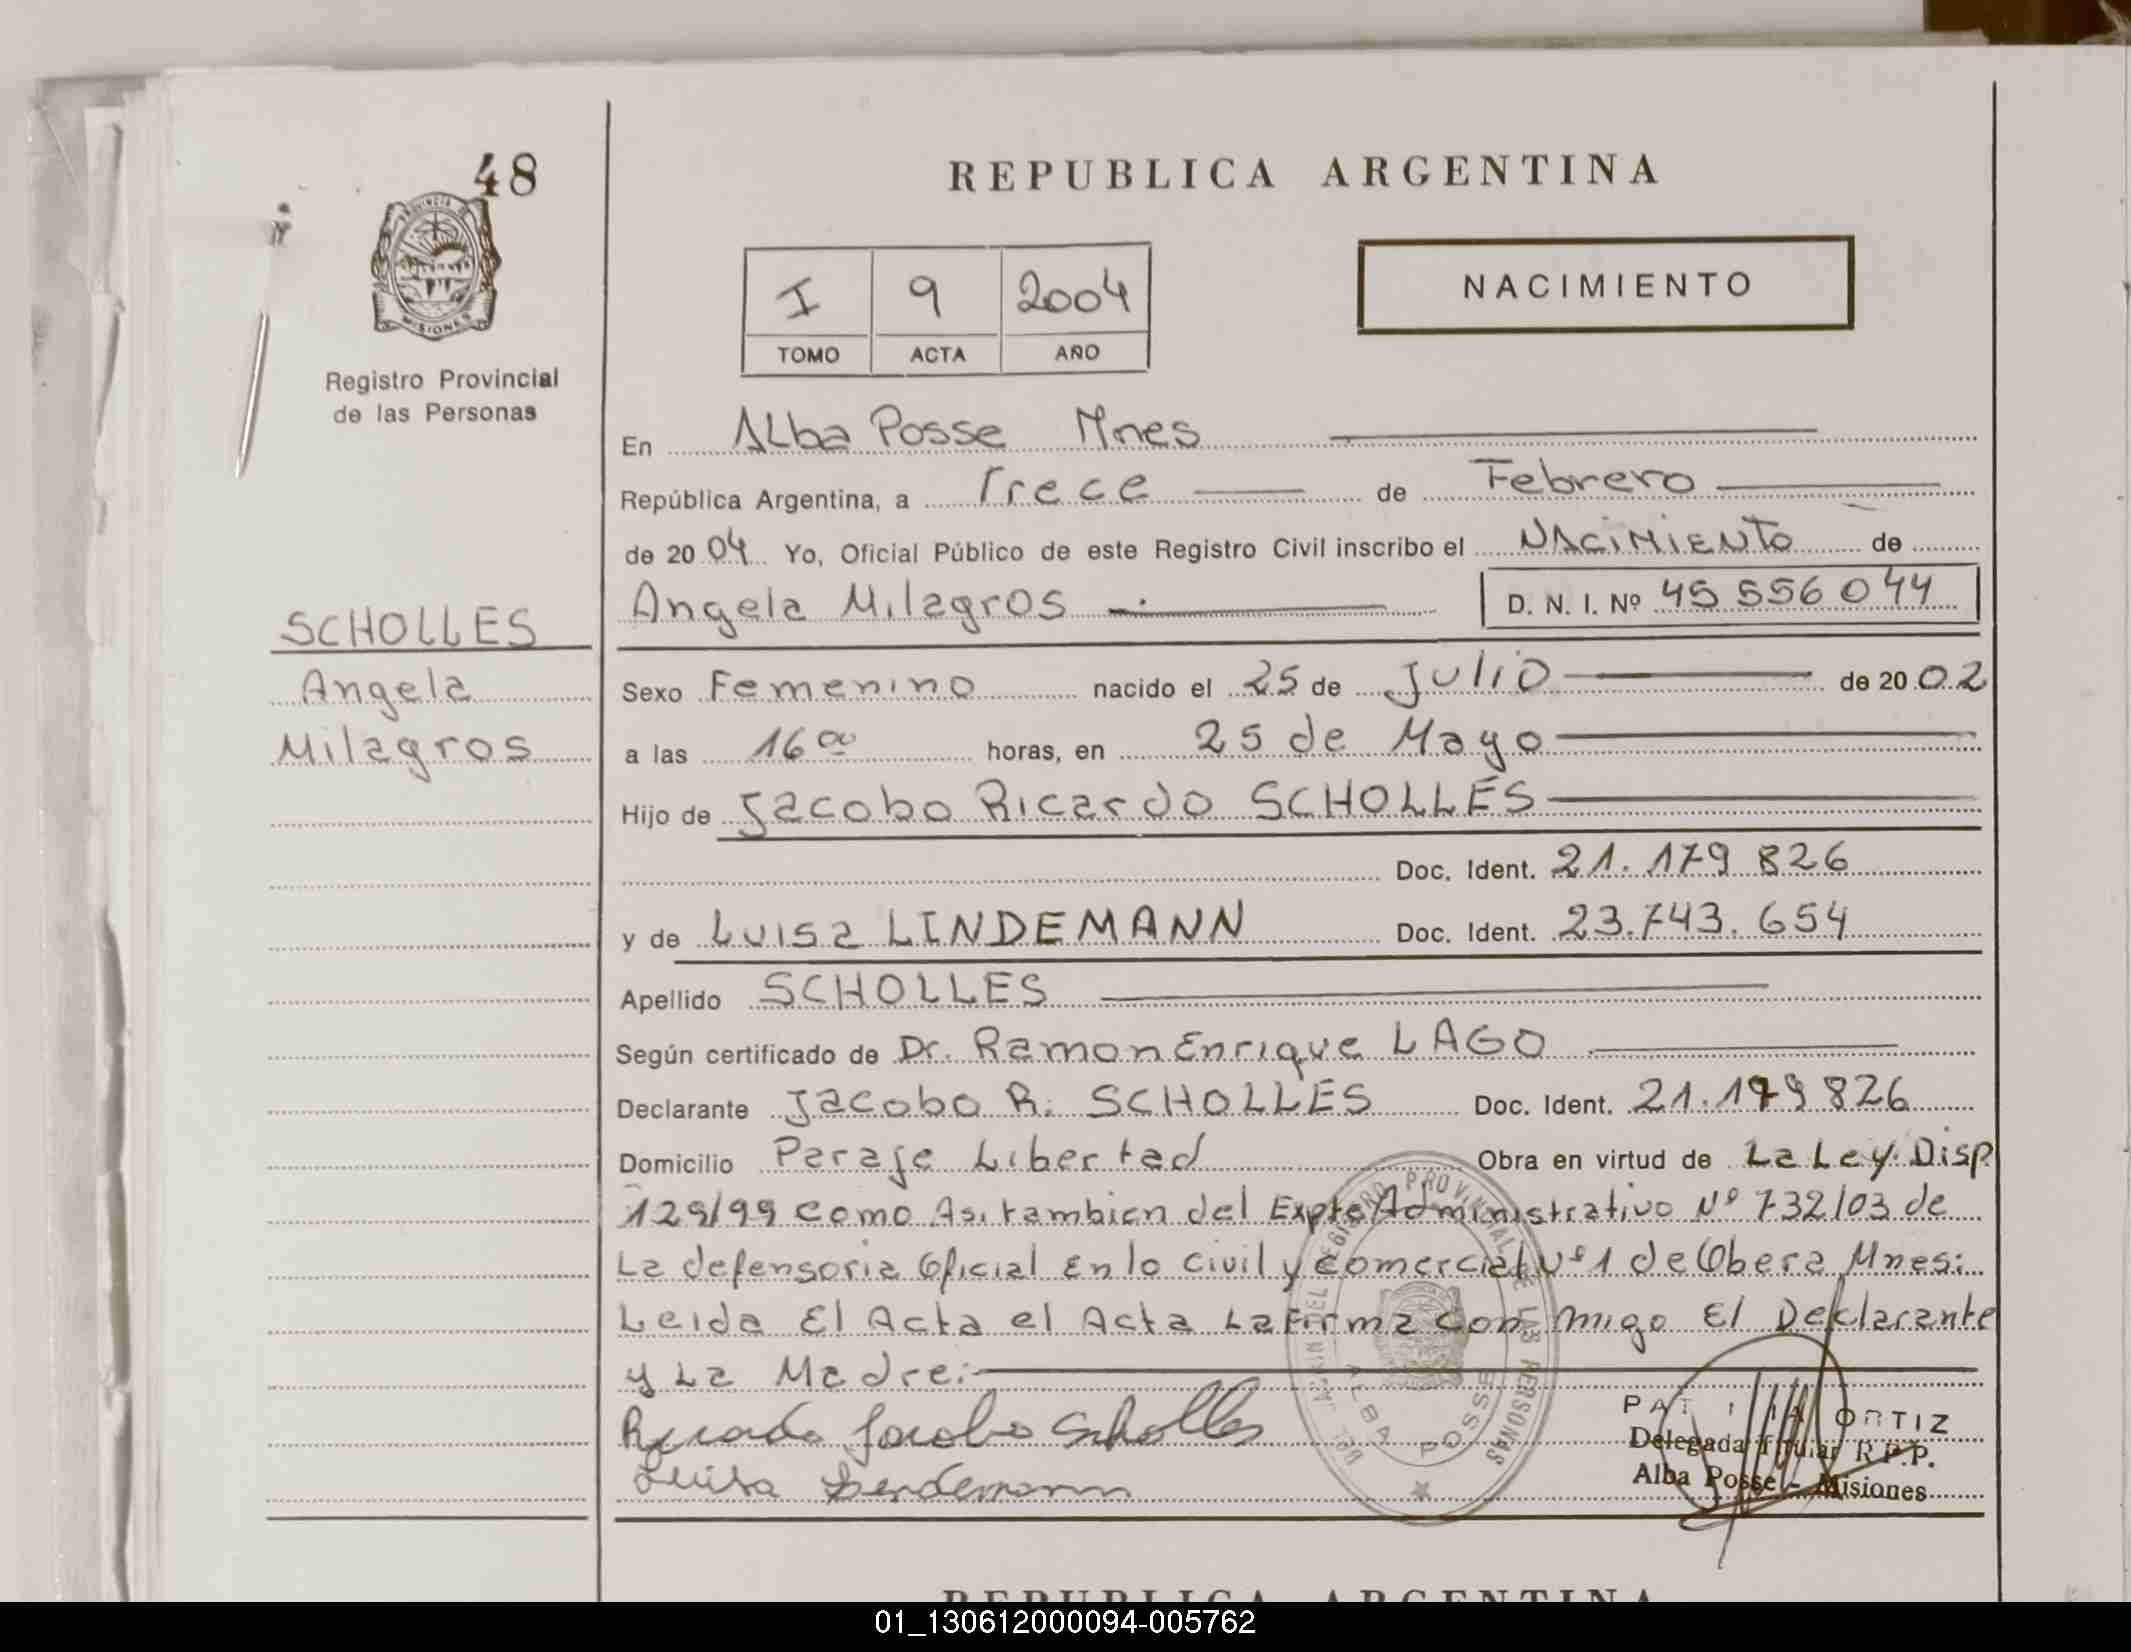 48
PROVINCIA DE
MISIONES
Registro Provincial
de las Personas
SCHOLLES
Angela
Milagros
REPUBLICA ARGENTINA
I 9 2004
TOMO ACTA AÑO
NACIMIENTO
En Alba Posse Mnes
República Argentina, a Trece de Febrero
de 2004 Yo, Oficial Público de este Registro Civil inscribo el NACIMIENTO de
Angela Milagros D. N. I. Nº 45 556 044
Sexo Femenino nacido el 25 de Julio de 2002
a las 16 00 horas, en 25 de Mayo
Hijo de Jacobo Ricardo SCHOLLES
Doc. Ident. 21.179 826
y de Luisa LINDEMANN Doc. Ident. 23.743.654
Apellido SCHOLLES
Según certificado de Dr. Ramon Enrique LAGO
Declarante Jacobo R. SCHOLLES Doc. Ident. 21.179 826
Domicilio Paraje Libertad Obra en virtud de La Ley. Disp
129/99 como Asi tambien del Expte Administrativo Nº 732/03 de
La defensoria Oficial En lo Civil y Comercial Nº 1 de Obera Mnes:
Leida El Acta el Acta La Firma con migo El Declarante
y La Madre:
Ricardo Jacobo Scholles
Luisa Lindemann
REGISTRO PROVINCIAL DE LAS PERSONAS
ALBA POSSE
ORTIZ
Delegada Titular R.P.P.
Alba Posse - Misiones
REPUBLICA ARGENTINA
01_130612000094-005762